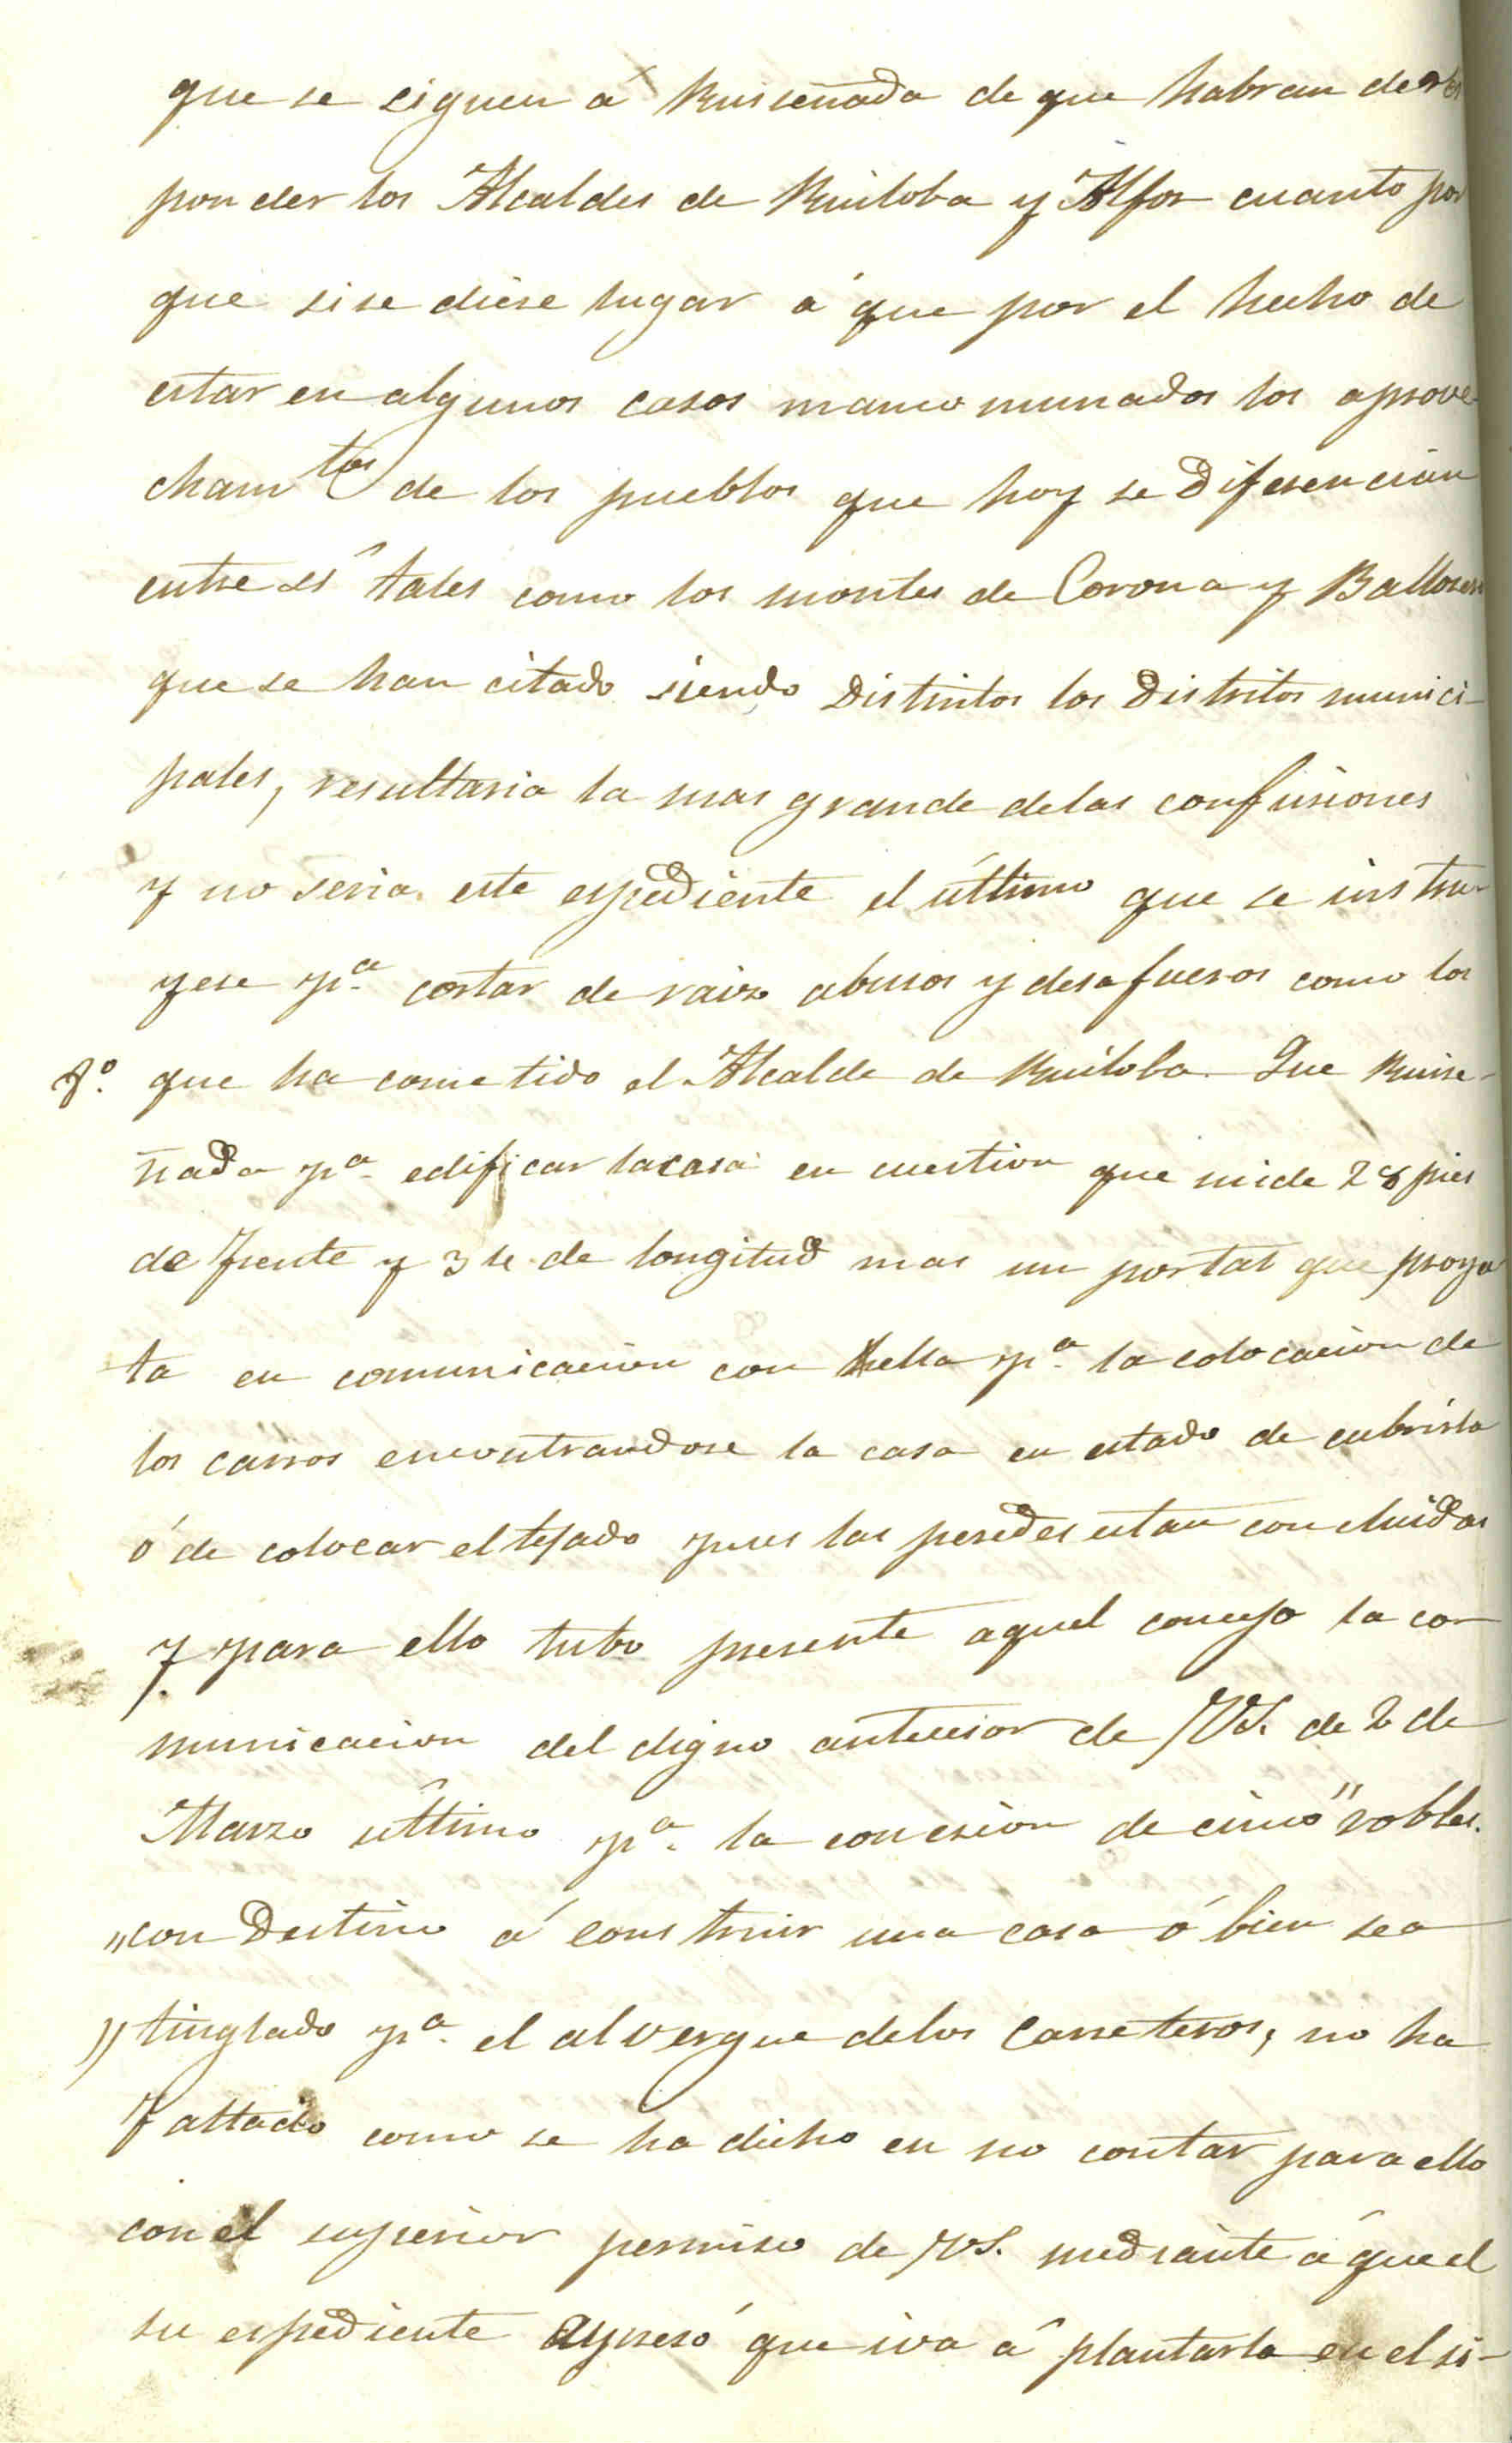 que se siguen á Ruiseñada de que habran de res
ponder los Alcaldes de Ruiloba y Alfoz cuanto por
que si se diese lugar á que por el hecho de
estar en algunos casos mancomunados los aprove
chamtos de los pueblos que hoy se diferencian
entre si tales como los montes de Corona y
que se han citado siendo distintos los distritos munici-
pales, resultaria la mas grande de las confusiones
y no seria este espediente el último que se instru-
yese pa. cortar de raiz abusos y desafueros como los
que ha cometido el Alcalde de Ruiloba. Que Ruise-
ñada pa. edificar la casa en cuestion que mide 28 pies
de frente y de longitud mas un portal que proyec
ta en comunicacion con ella pa. la colocacion de
los carros encontrandose la casa en estado de cubrirla
ó de colocar el tejado pues las peredes estan concluidas
y para ello tubo presente aquel concejo la co-
municacion del digno antecesor de VS. de 2 de
Marzo último pa. la concesion de cinco "robles.
"con destino á construir una casa ó bien sea
"tinglado pa. el alvergue de los carreteros, no ha
faltado como se ha dicho en no contar para ello
con el superior permiso de VS. mediante á que el
su espediente que iva á plantarla en el si-